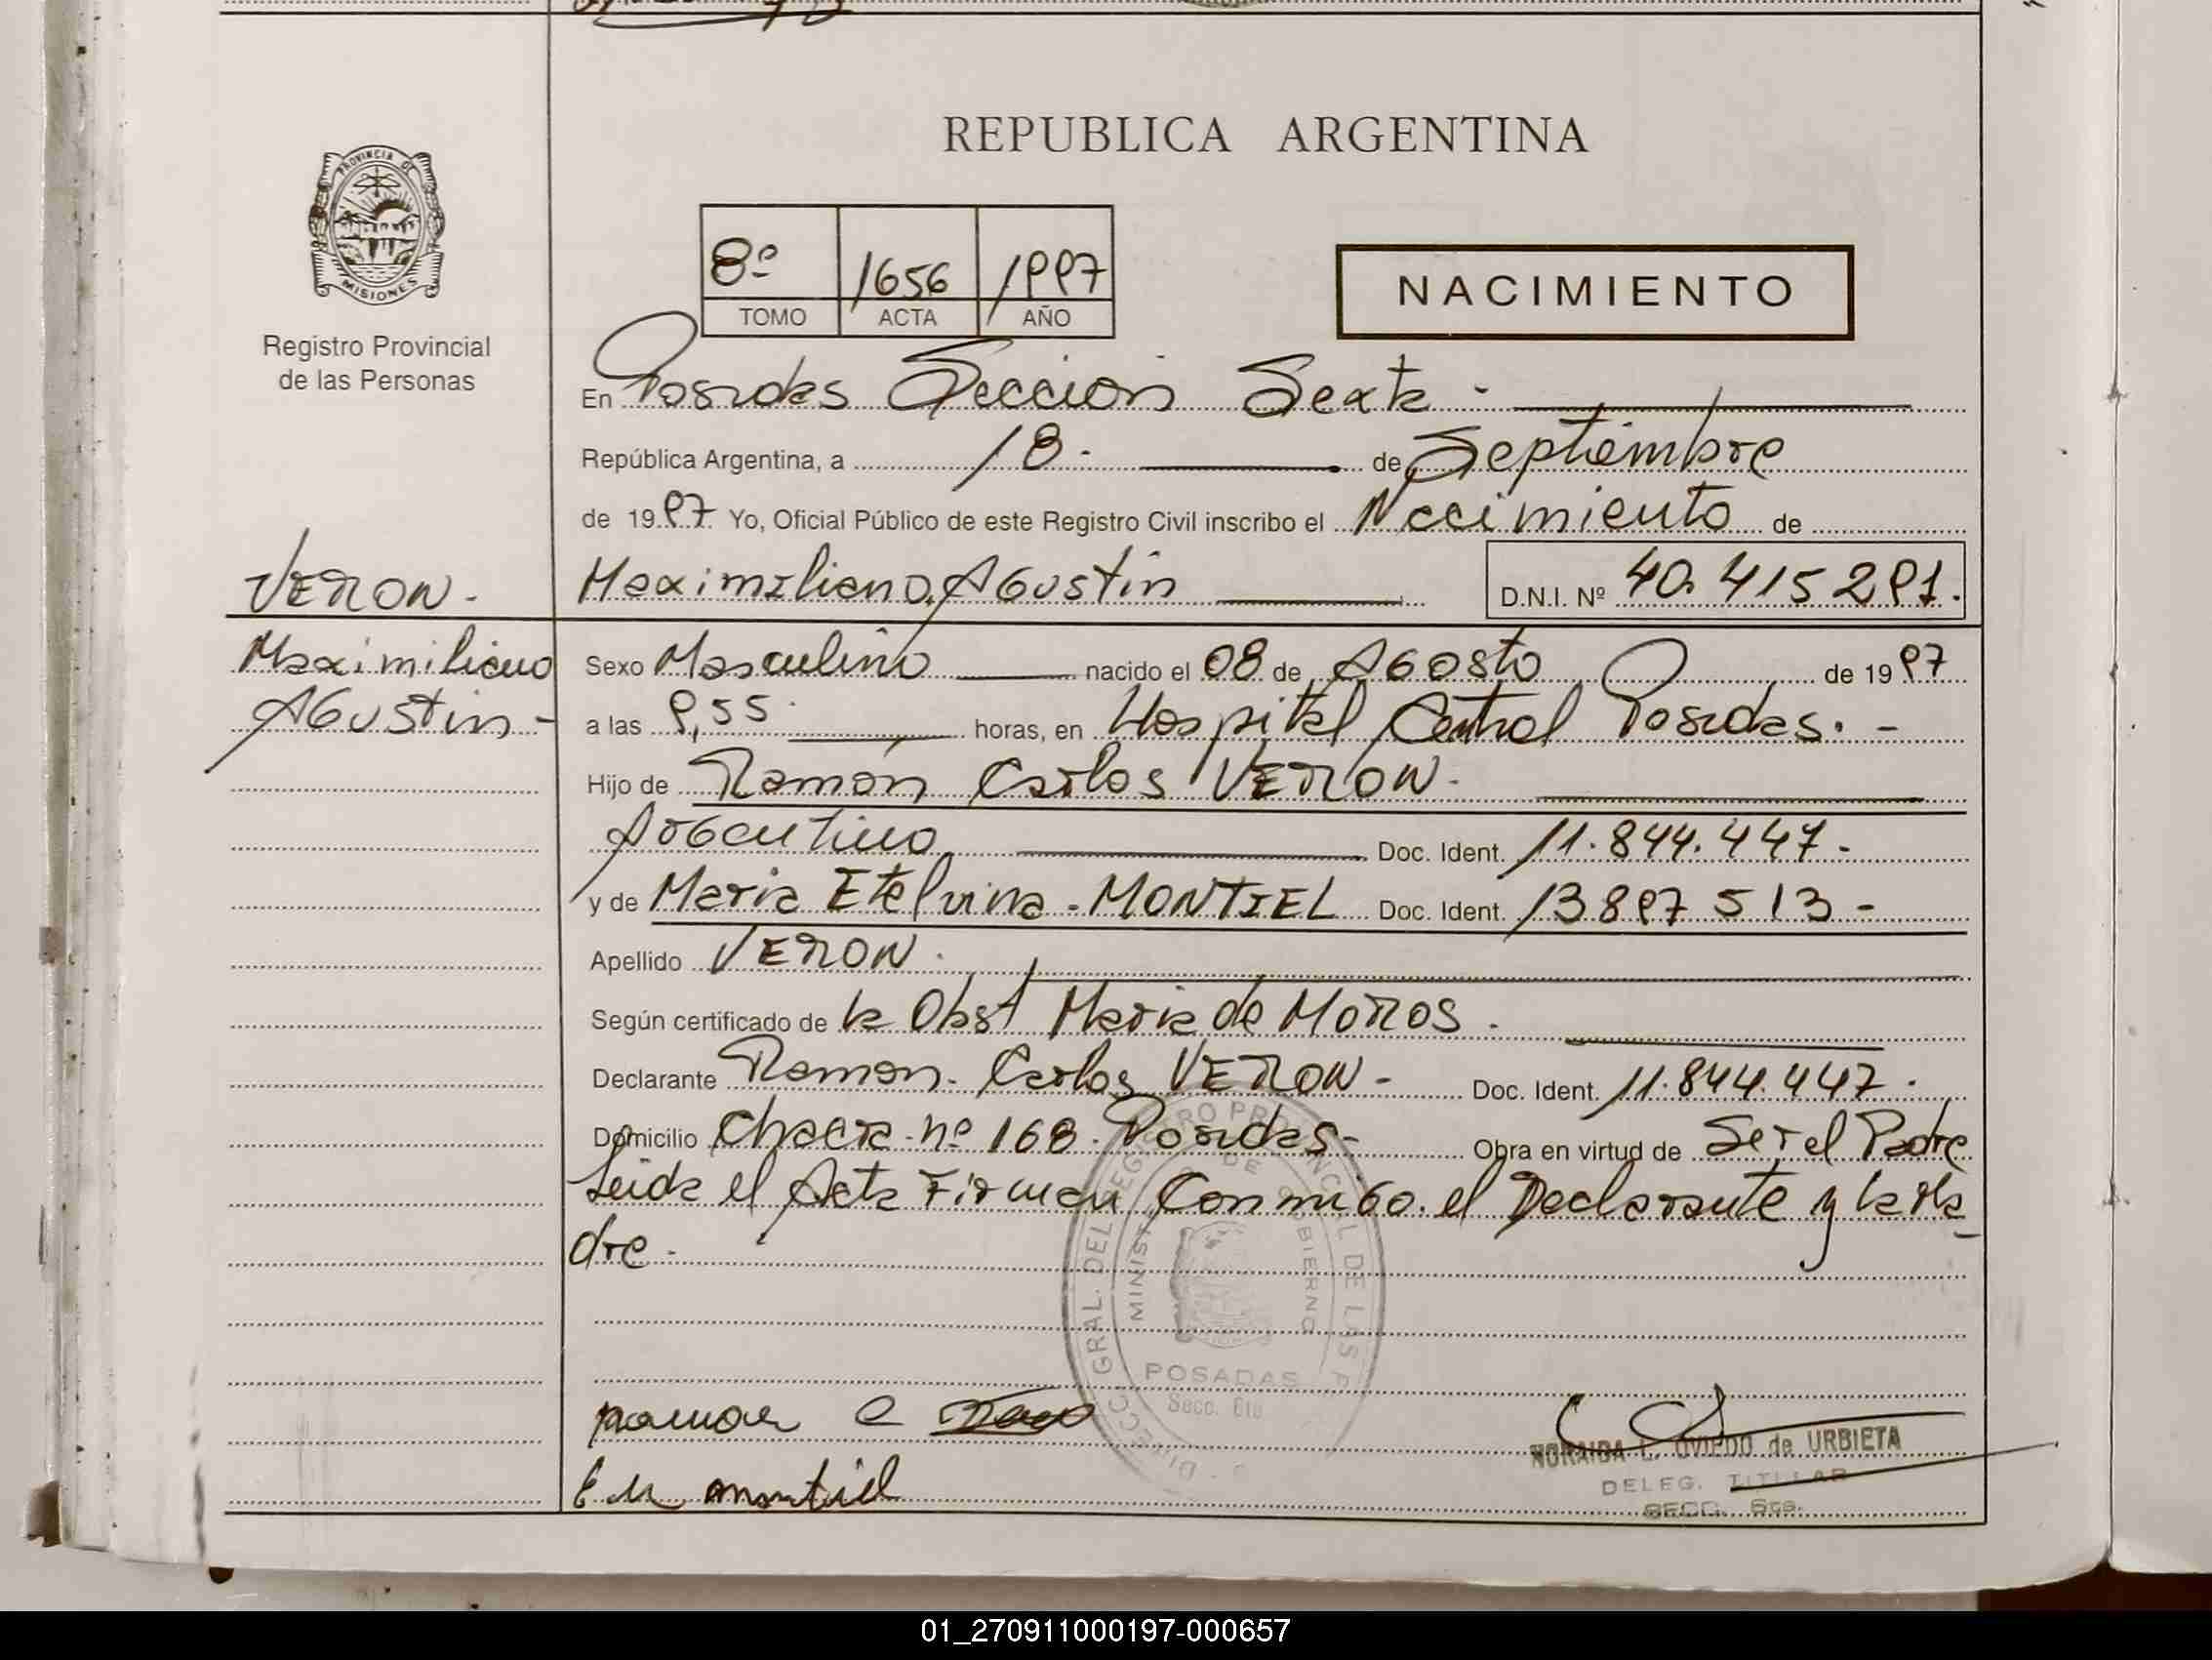 REPUBLICA ARGENTINA
PROVINCIA DE
MISIONES
Registro Provincial
de las Personas
8º 1656 1997
TOMO ACTA AÑO
NACIMIENTO
En Posadas Sección Sexta.
República Argentina, a 18. de Septiembre
de 1997 Yo, Oficial Público de este Registro Civil inscribo el Nacimiento de
Maximiliano Agustín D.N.I. Nº 40.415291.
VERON.
Maximiliano
Agustin-
Sexo Masculino nacido el 08 de Agosto de 1997
a las 9,55 horas, en Hospital Central Posadas. -
Hijo de Ramón Carlos VERON.
Argentino Doc. Ident. 11.844.447-
y de Maria Etelvina-MONTIEL Doc. Ident. 13897513-
Apellido VERON.
Según certificado de la Obst Maria de MORROS.
Declarante Ramon. Carlos VERON- Doc. Ident. 11.844.447.
Domicilio Chacra-nº 168. Posadas- Obra en virtud de Ser el Padre
Leida el Acta Firman Conmigo. el Declarante y la Ma_
dre.
DIRECC. GRAL. DEL REGISTRO PROVINCIAL DE LAS P
MINIST DE GOBIERNO
POSADAS
Secc. 6ta
E M montiel
NORAIDA L. OVIEDO de URBIETA
DELEG. TITULAR
SECC. 6ta.
01_270911000197-000657